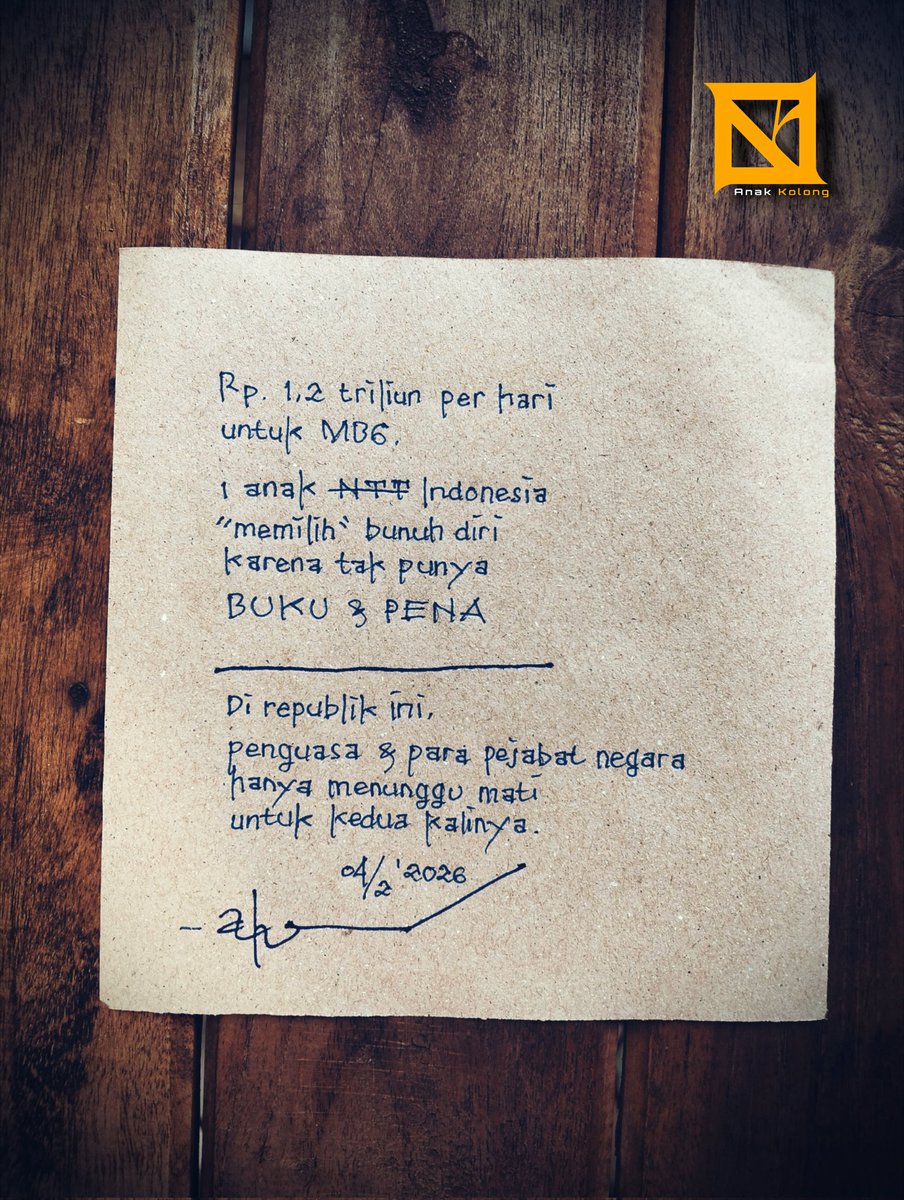 Anak Kolong
Rp. 1,2 triliun per hari
untuk MBG.
1 anak NTT Indonesia
"memilih" bunuh diri
karena tak punya
BUKU & PENA
Di republik ini,
penguasa & para pejabat negara
hanya menunggu mati
untuk kedua kalinya.
04/2 '2026